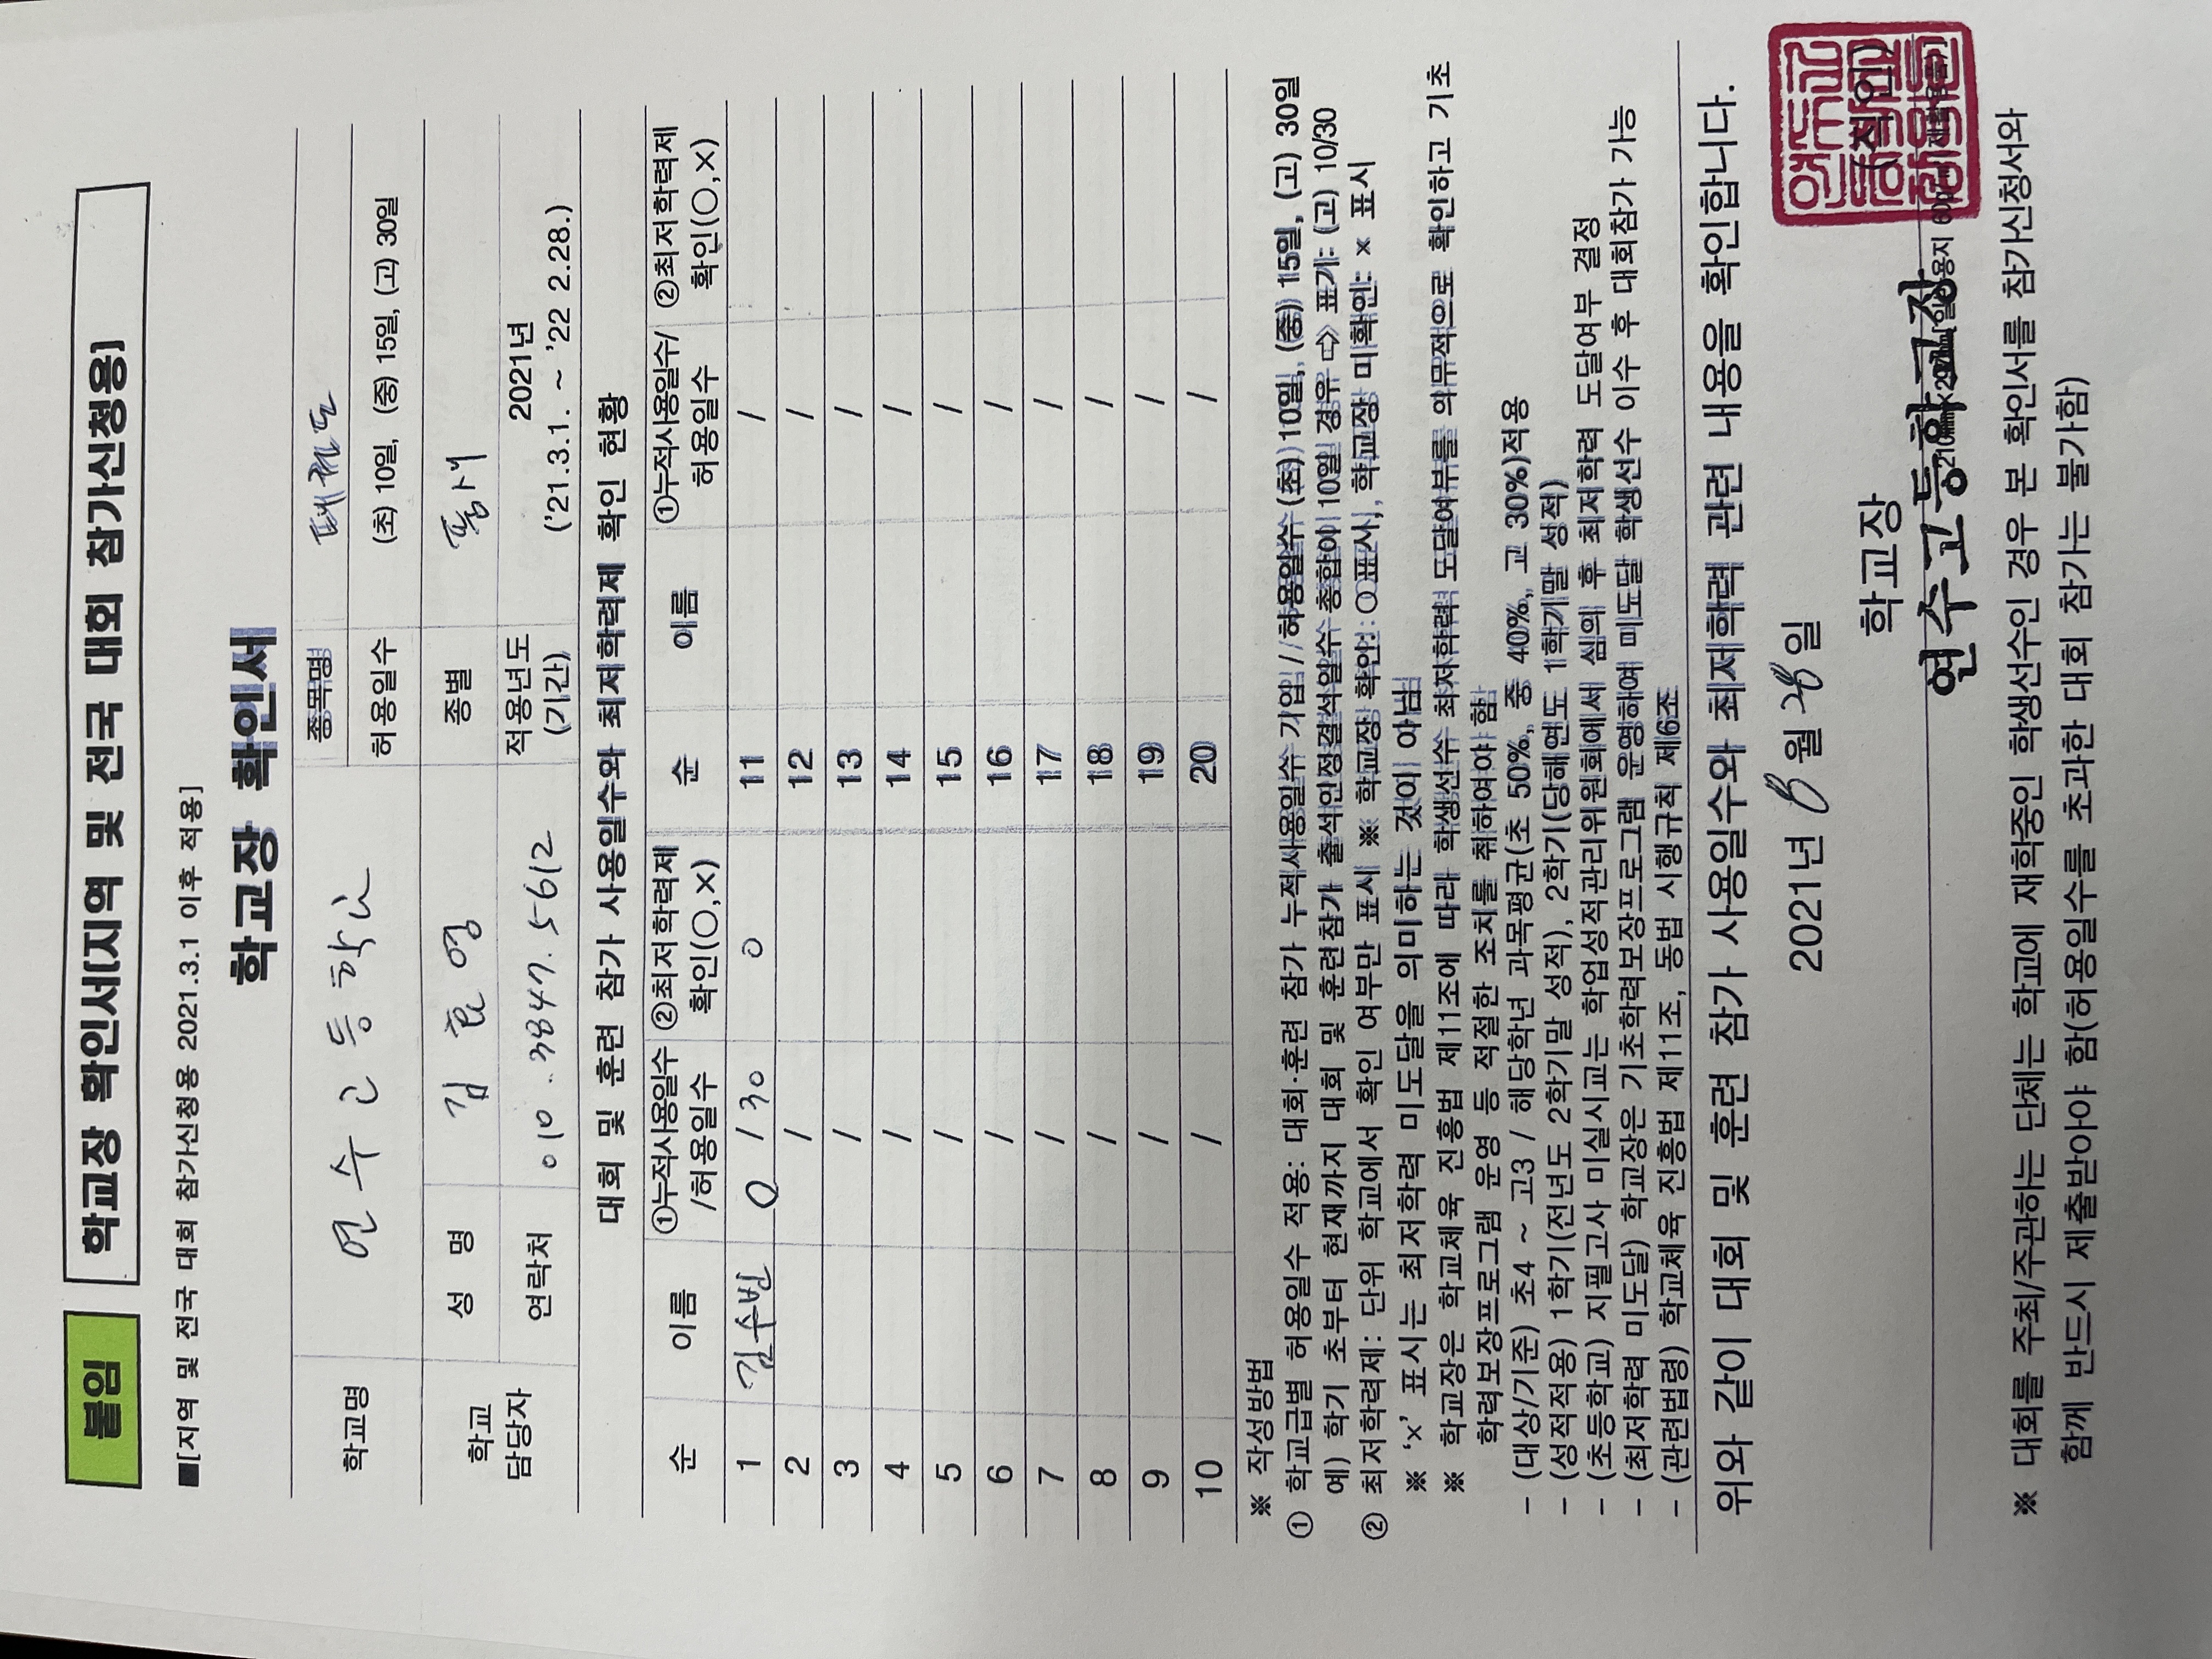 붙임
학교장 확인서[지역 및 전국 대회 참가신청용]
■[지역 및 전국 대회 참가신청용 2021.3.1 이후 적용]
학교장 확인서
학교명 연수고등학교 종목명 태권도
허용일수 (초) 10일, (중) 15일, (고) 30일
학교 담당자 성 명 김효영 종별 품새
연락처 010.3847.5612 적용년도 (기간) 2021년 ('21.3.1. ~ '22 2.28.)
대회 및 훈련 참가 사용일수와 최저학력제 확인 현황
순 이름 ①누적사용일수 /허용일수 ②최저학력제 확인(○,×) 순 이름 ①누적사용일수/ 허용일수 ②최저학력제 확인(○,×)
1 김수빈 0 / 30 0 11 /
2 / 12 /
3 / 13 /
4 / 14 /
5 / 15 /
6 / 16 /
7 / 17 /
8 / 18 /
9 / 19 /
10 / 20 /
※ 작성방법
① 학교급별 허용일수 적용: 대회·훈련 참가 누적사용일수 기입 / 허용일수 (초) 10일, (중) 15일, (고) 30일
예) 학기 초부터 현재까지 대회 및 훈련참가 출석인정결석일수 총합이 10일 경우 ⇨ 표기: (고) 10/30
② 최저학력제: 단위 학교에서 확인 여부만 표시 ※ 학교장 확인: ○표시, 학교장 미확인: × 표시
※ '×' 표시는 최저학력 미도달을 의미하는 것이 아님
※ 학교장은 학교체육 진흥법 제11조에 따라 학생선수 최저학력 도달여부를 의무적으로 확인하고 기초
학력보장프로그램 운영 등 적절한 조치를 취하여야 함
- (대상/기준) 초4 ~ 고3 / 해당학년 과목평균(초 50%, 중 40%, 고 30%)적용
- (성적적용) 1학기(전년도 2학기말 성적), 2학기(당해연도 1학기말 성적)
- (초등학교) 지필고사 미실시교는 학업성적관리위원회에서 심의 후 최저학력 도달여부 결정
- (최저학력 미도달) 학교장은 기초학력보장프로그램 운영해여 미도달 학생선수 이수 후 대회참가 가능
- (관련법령) 학교체육 진흥법 제11조, 동법 시행규칙 제6조
위와 같이 대회 및 훈련 참가 사용일수와 최제학력 관련 내용을 확인합니다.
2021년 8월 28일
학교장 (직인)
연수고등학교장
210㎜×297㎜[일반용지 60g/㎡(재활용품)]
※ 대회를 주최/주관하는 단체는 학교에 재학중인 학생선수인 경우 본 확인서를 참가신청서와
함께 반드시 제출받아야 함(허용일수를 초과한 대회 참가는 불가함)